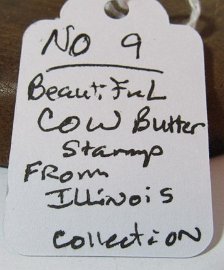 No 9
BeautiFuL
Cow Butter
Stamp
From
ILLiNois
CollectioN